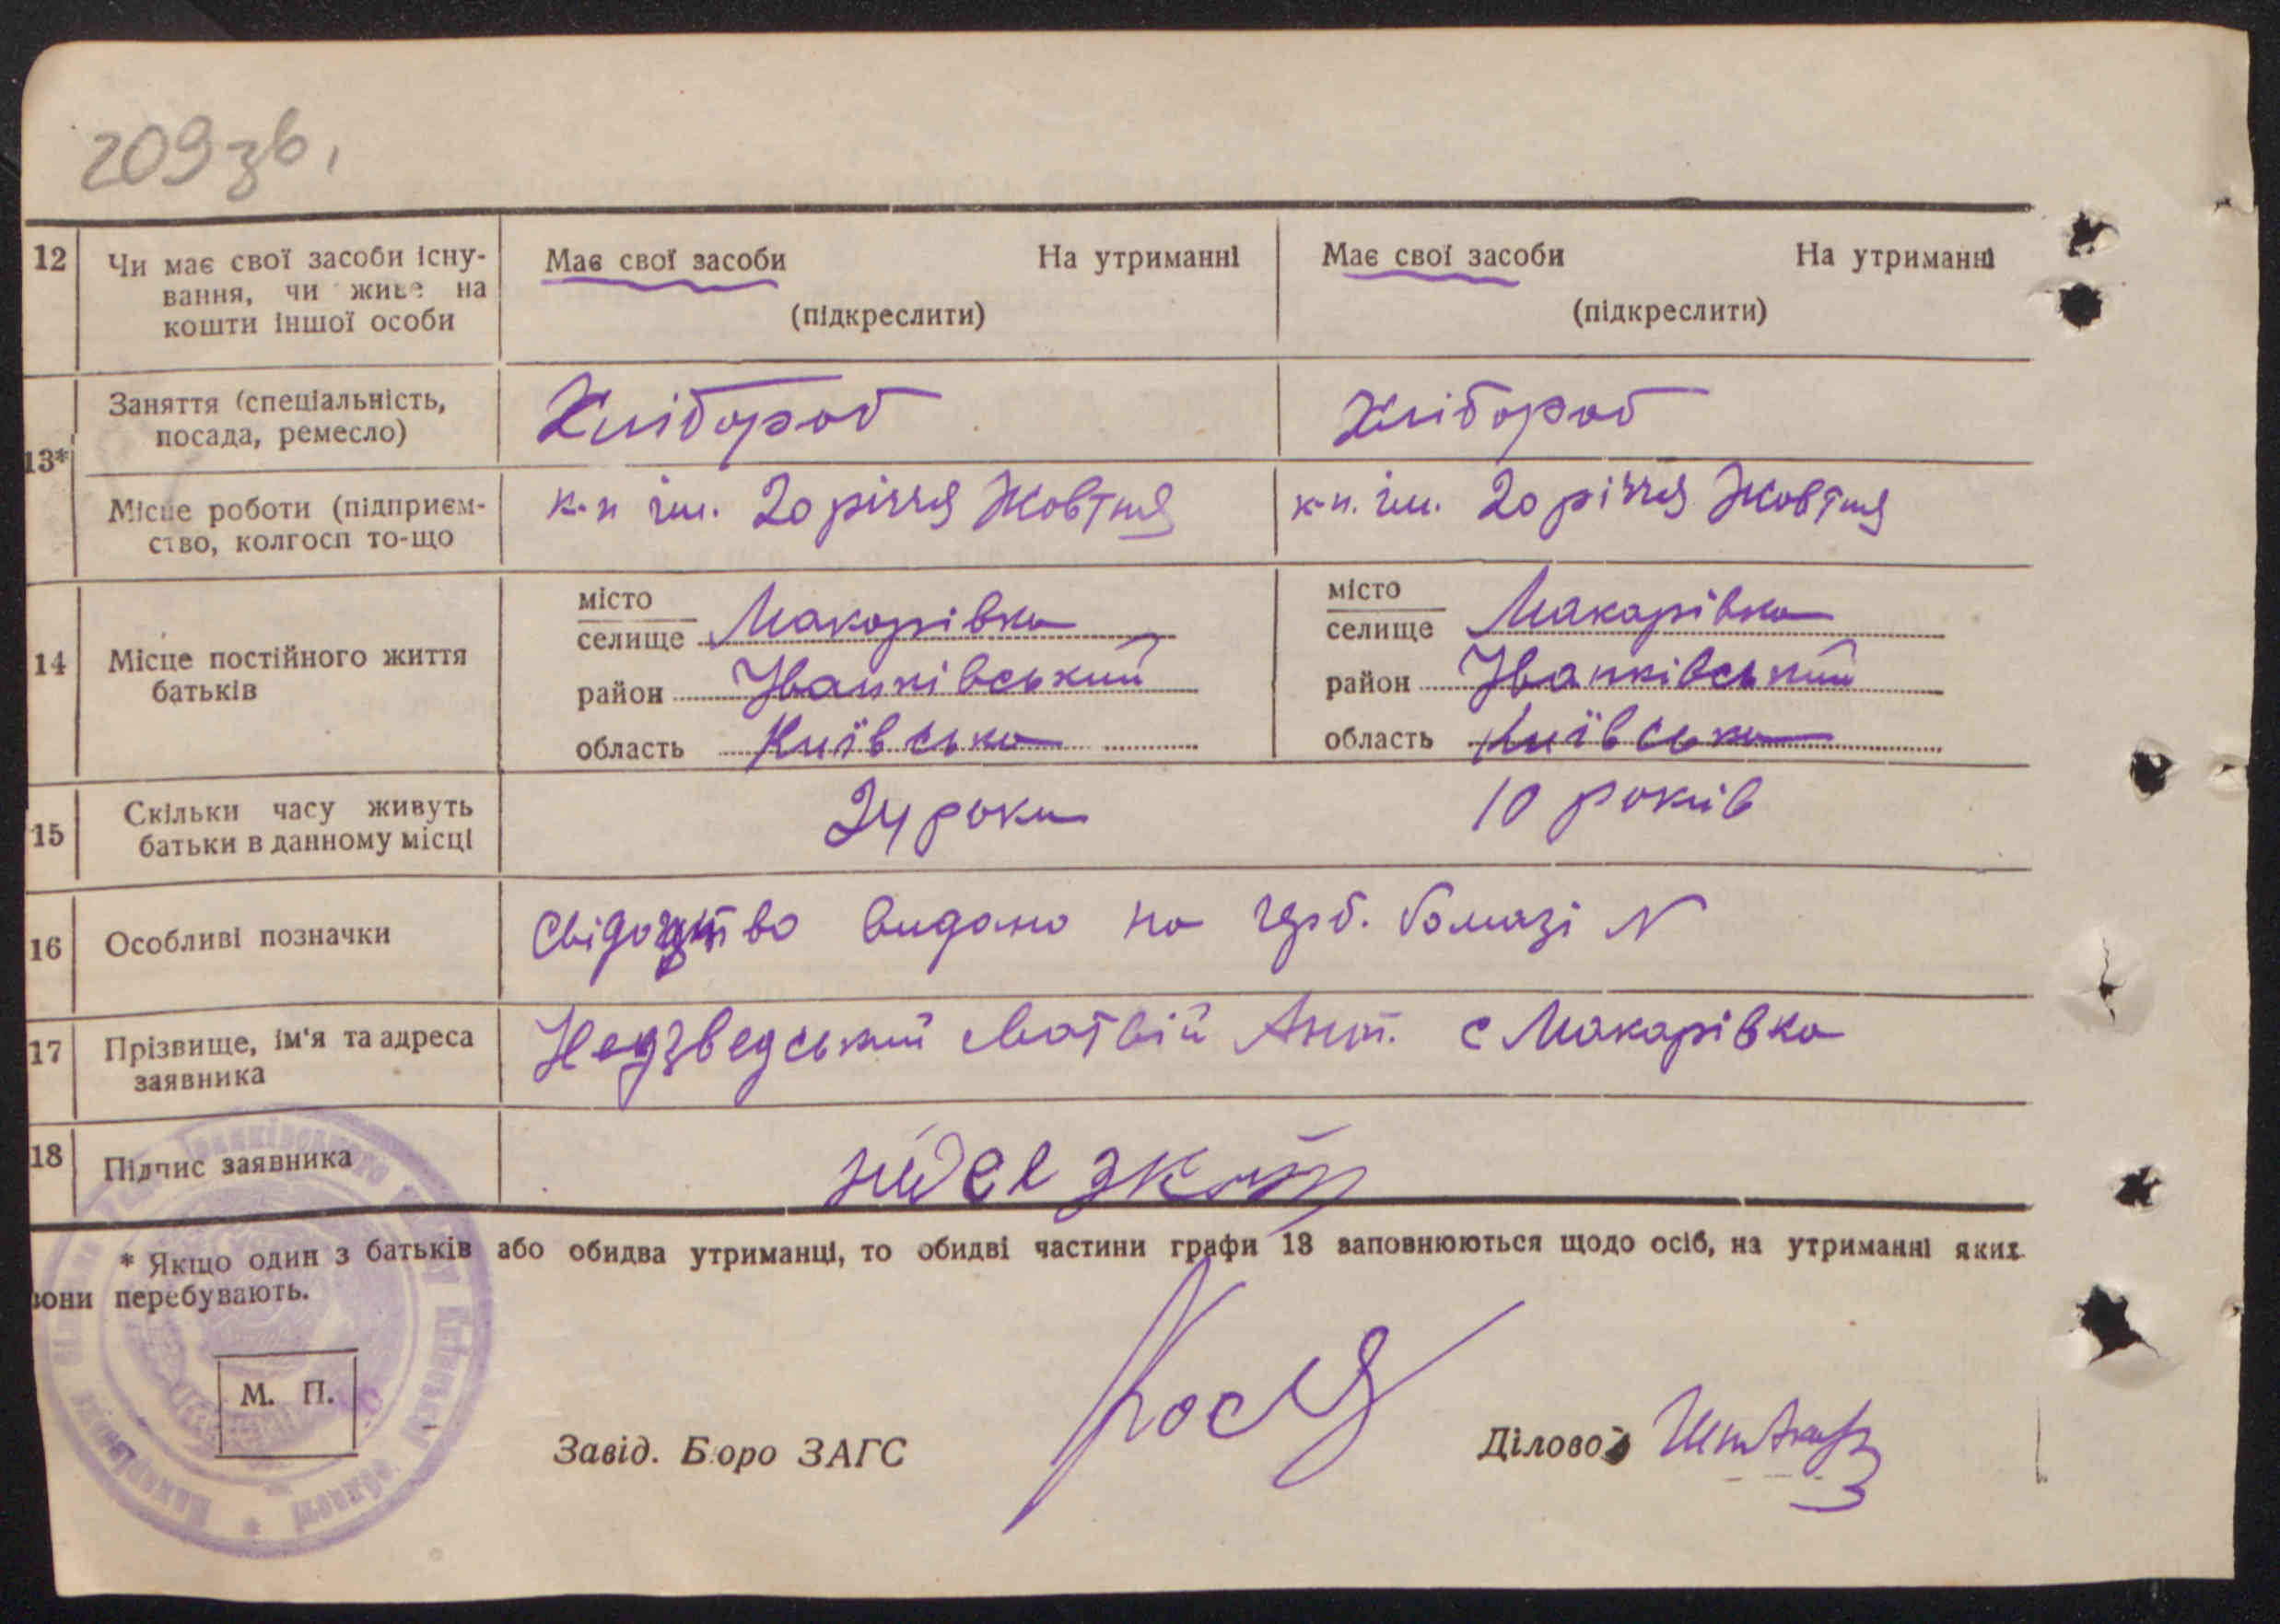 209 зв.
12 Чи має свої засоби існу- Має свої засоби На утриманні Має свої засоби На утриманні
вання, чи живе на
кошти іншої особи (підкреслити) (підкреслити)
Заняття (спеціальність, Хлібороб Хлібороб
посада, ремесло)
13*
Місце роботи (підприєм- к-п ім. 20 річчя Жовтня к-п. ім. 20 річчя Жовтня
ство, колгосп то-що
місто місто
селище Макарівка селище Макарівка
14 Місце постійного життя район Іванківський район Іванківський
батьків
область Київська область Київська
15 Скільки часу живуть 24 роки 10 років
батьки в данному місці
16 Особливі позначки Свідоцтво видано на герб. бомазі N
17 Прізвище, ім'я та адреса Недзведський Матвій Ант. с Макарівка
заявника
18 Підпис заявника
* Якщо один з батьків або обидва утриманці, то обидві частини графи 13 заповнюються щодо осіб, на утриманні яких
вони перебувають.
М. П.
Завід. Бюро ЗАГС Діловод